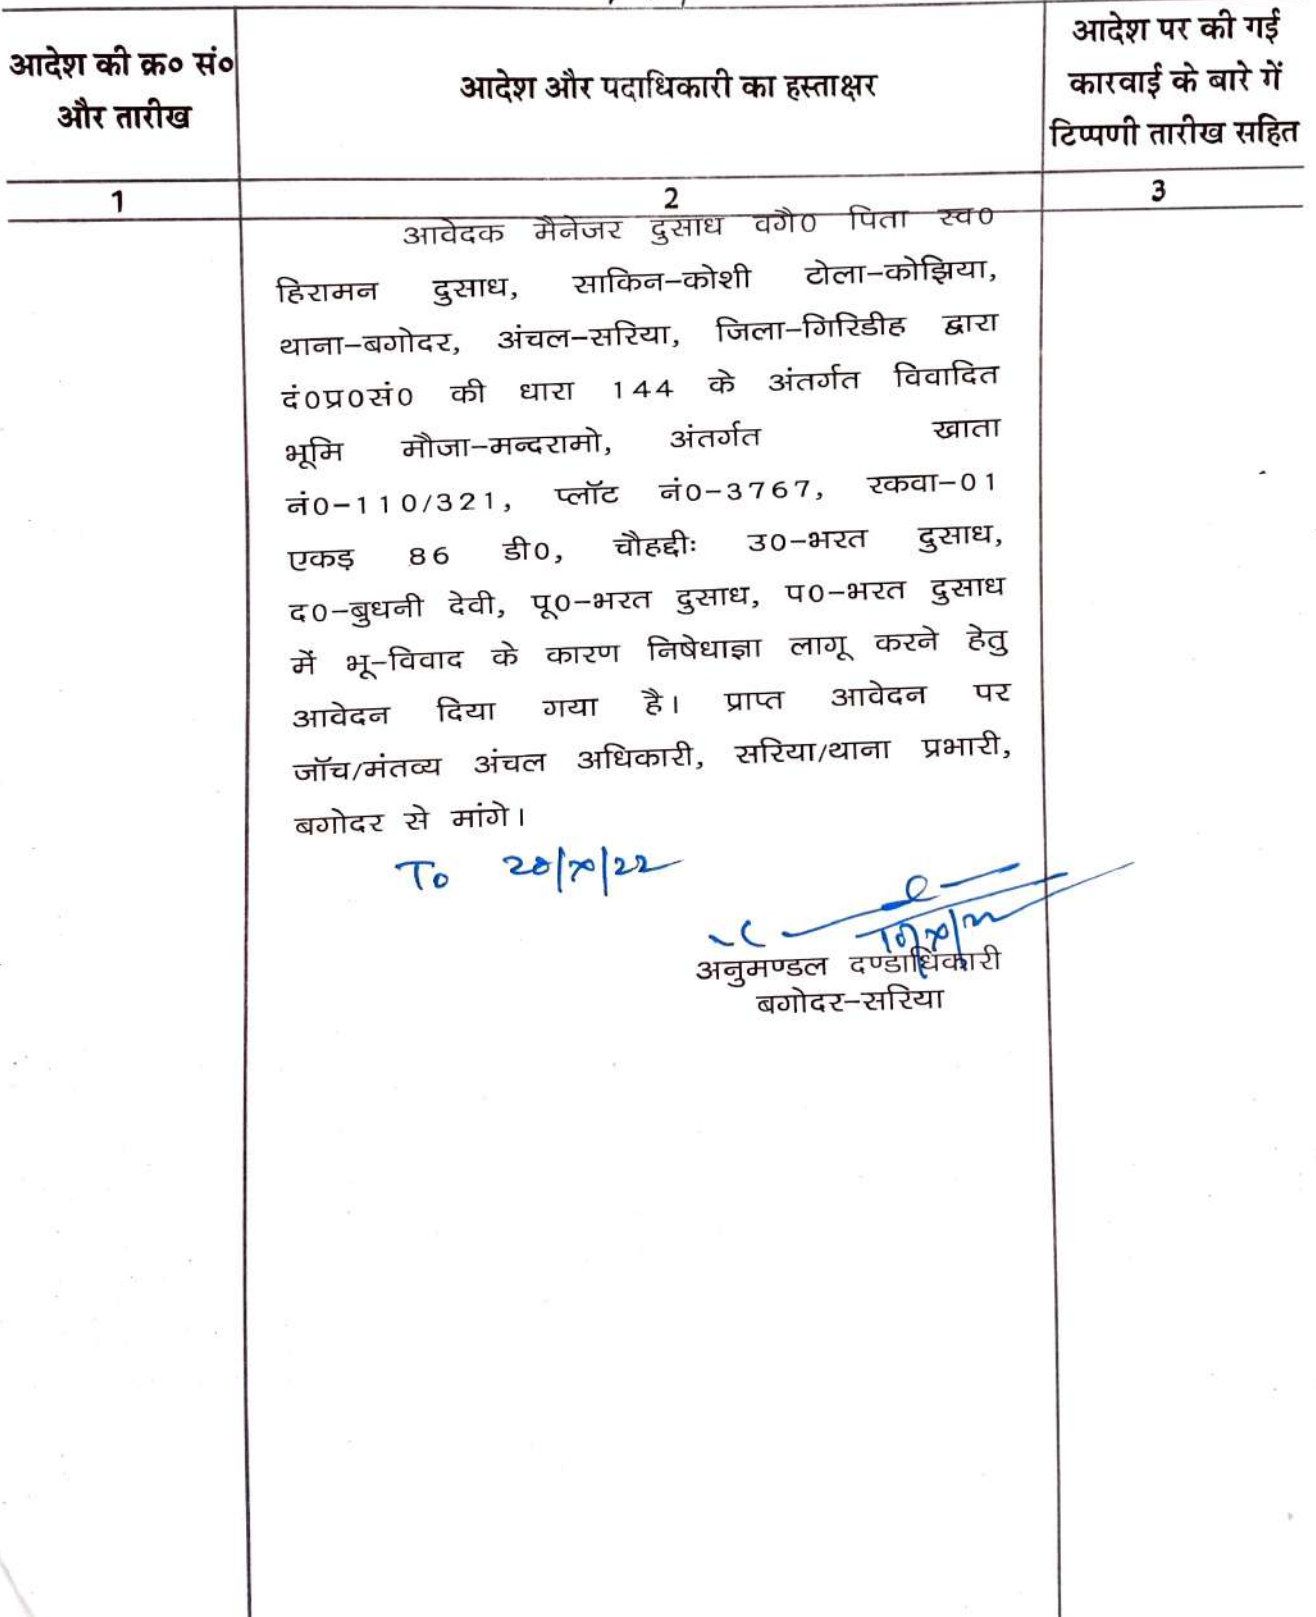 आदेश की क्र० सं०
और तारीख
आदेश और पदाधिकारी का हस्ताक्षर
आदेश पर की गई
कारवाई के बारे गें
टिप्पणी तारीख सहित
1
2
3
आवेदक मैनेजर दुसाध वगै0 पिता स्व0
हिरामन दुसाध, साकिन-कोशी टोला-कोझिया,
थाना-बगोदर, अंचल-सरिया, जिला-गिरिडीह द्वारा
दं0प्र0सं0 की धारा 144 के अंतर्गत विवादित
भूमि मौजा-मन्दरामो, अंतर्गत खाता
नं0-110/321, प्लॉट नं0-3767, रकवा-01
एकड़ 86 डी0, चौहद्दीः उ0-भरत दुसाध,
द0-बुधनी देवी, पू0-भरत दुसाध, प0-भरत दुसाध
में भू-विवाद के कारण निषेधाज्ञा लागू करने हेतु
आवेदन दिया गया है। प्राप्त आवेदन पर
जॉच/मंतव्य अंचल अधिकारी, सरिया/थाना प्रभारी,
बगोदर से मांगे।
To
अनुमण्डल दण्डाधिकारी
बगोदर-सरिया